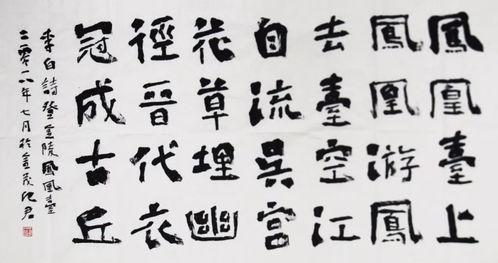 鳳凰臺上
鳳凰游鳳
去臺空江
自流吳宮
花草埋幽
徑晉代衣
冠成古丘
李白詩登金陵鳳凰臺
二零一八年七月於